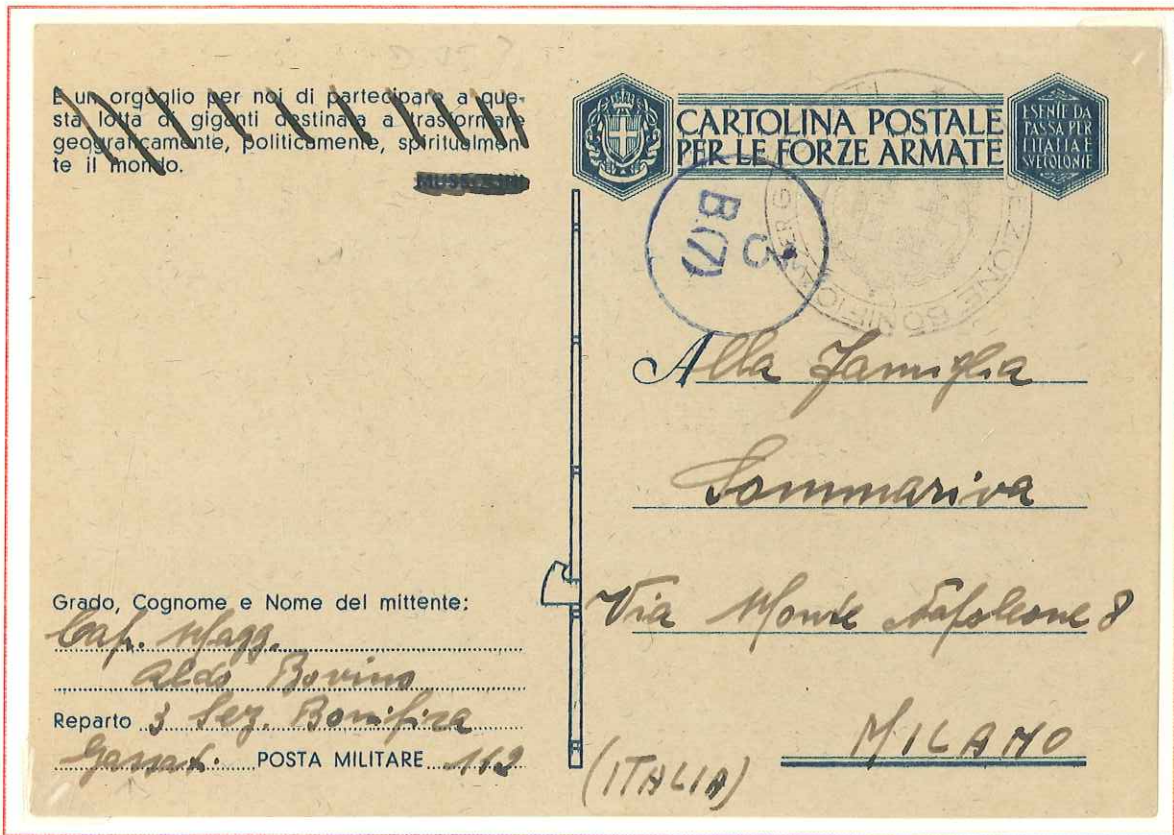 È un orgoglio per noi di partecipare a que-
sta lotta di giganti destinata a trasformare
geograficamente, politicamente, spiritualmen
te il mondo.
MUSSOLINI
CARTOLINA POSTALE
PER LE FORZE ARMATE
ESENTE DA
TASSA PER
L'ITALIA E
SVE COLONIE
3
B(7)
SEZIONE BONIFICA
Alla Famiglia
Sommariva
Via Monte Napoleone 8
MILANO
(ITALIA)
Grado, Cognome e Nome del mittente:
Cap. Magg.
Aldo Bovino
Reparto 3 Sez. Bonifica
POSTA MILITARE 112